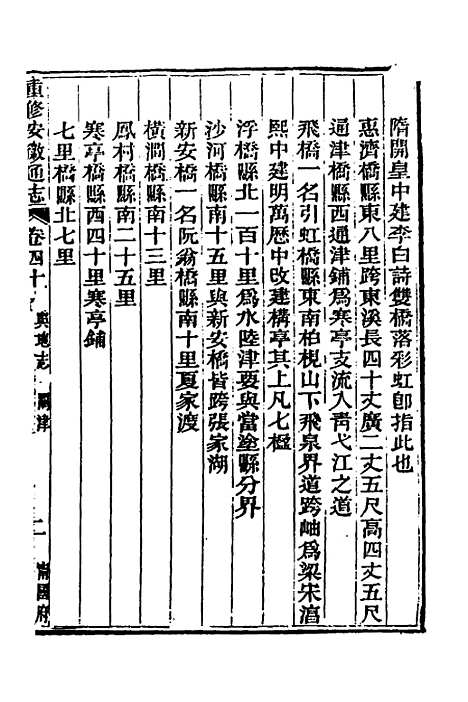 隋開皇中建李白詩雙橋落彩虹卽指此也
惠濟橋縣東八里跨東溪長四十丈廣二丈五尺高四丈五尺
通津橋縣西通津鋪爲寒亭支流入靑弋江之道
飛橋一名引虹橋縣東南柏梘山下飛泉界道跨岫爲梁宋
熙中建明萬歷中改建構亭其上凡七楹
浮橋縣北一百十里爲水陸津要與當塗縣分界
沙河橋縣南十五里與新安橋皆跨張家湖
新安橋一名阮翁橋縣南十里夏家渡
橫澗橋縣南十三里
鳳村橋縣南二十五里
寒亭橋縣西四十里寒亭鋪
七里橋縣北七里
重修安徽通志 卷四十 輿地志 關津 二 甯國府